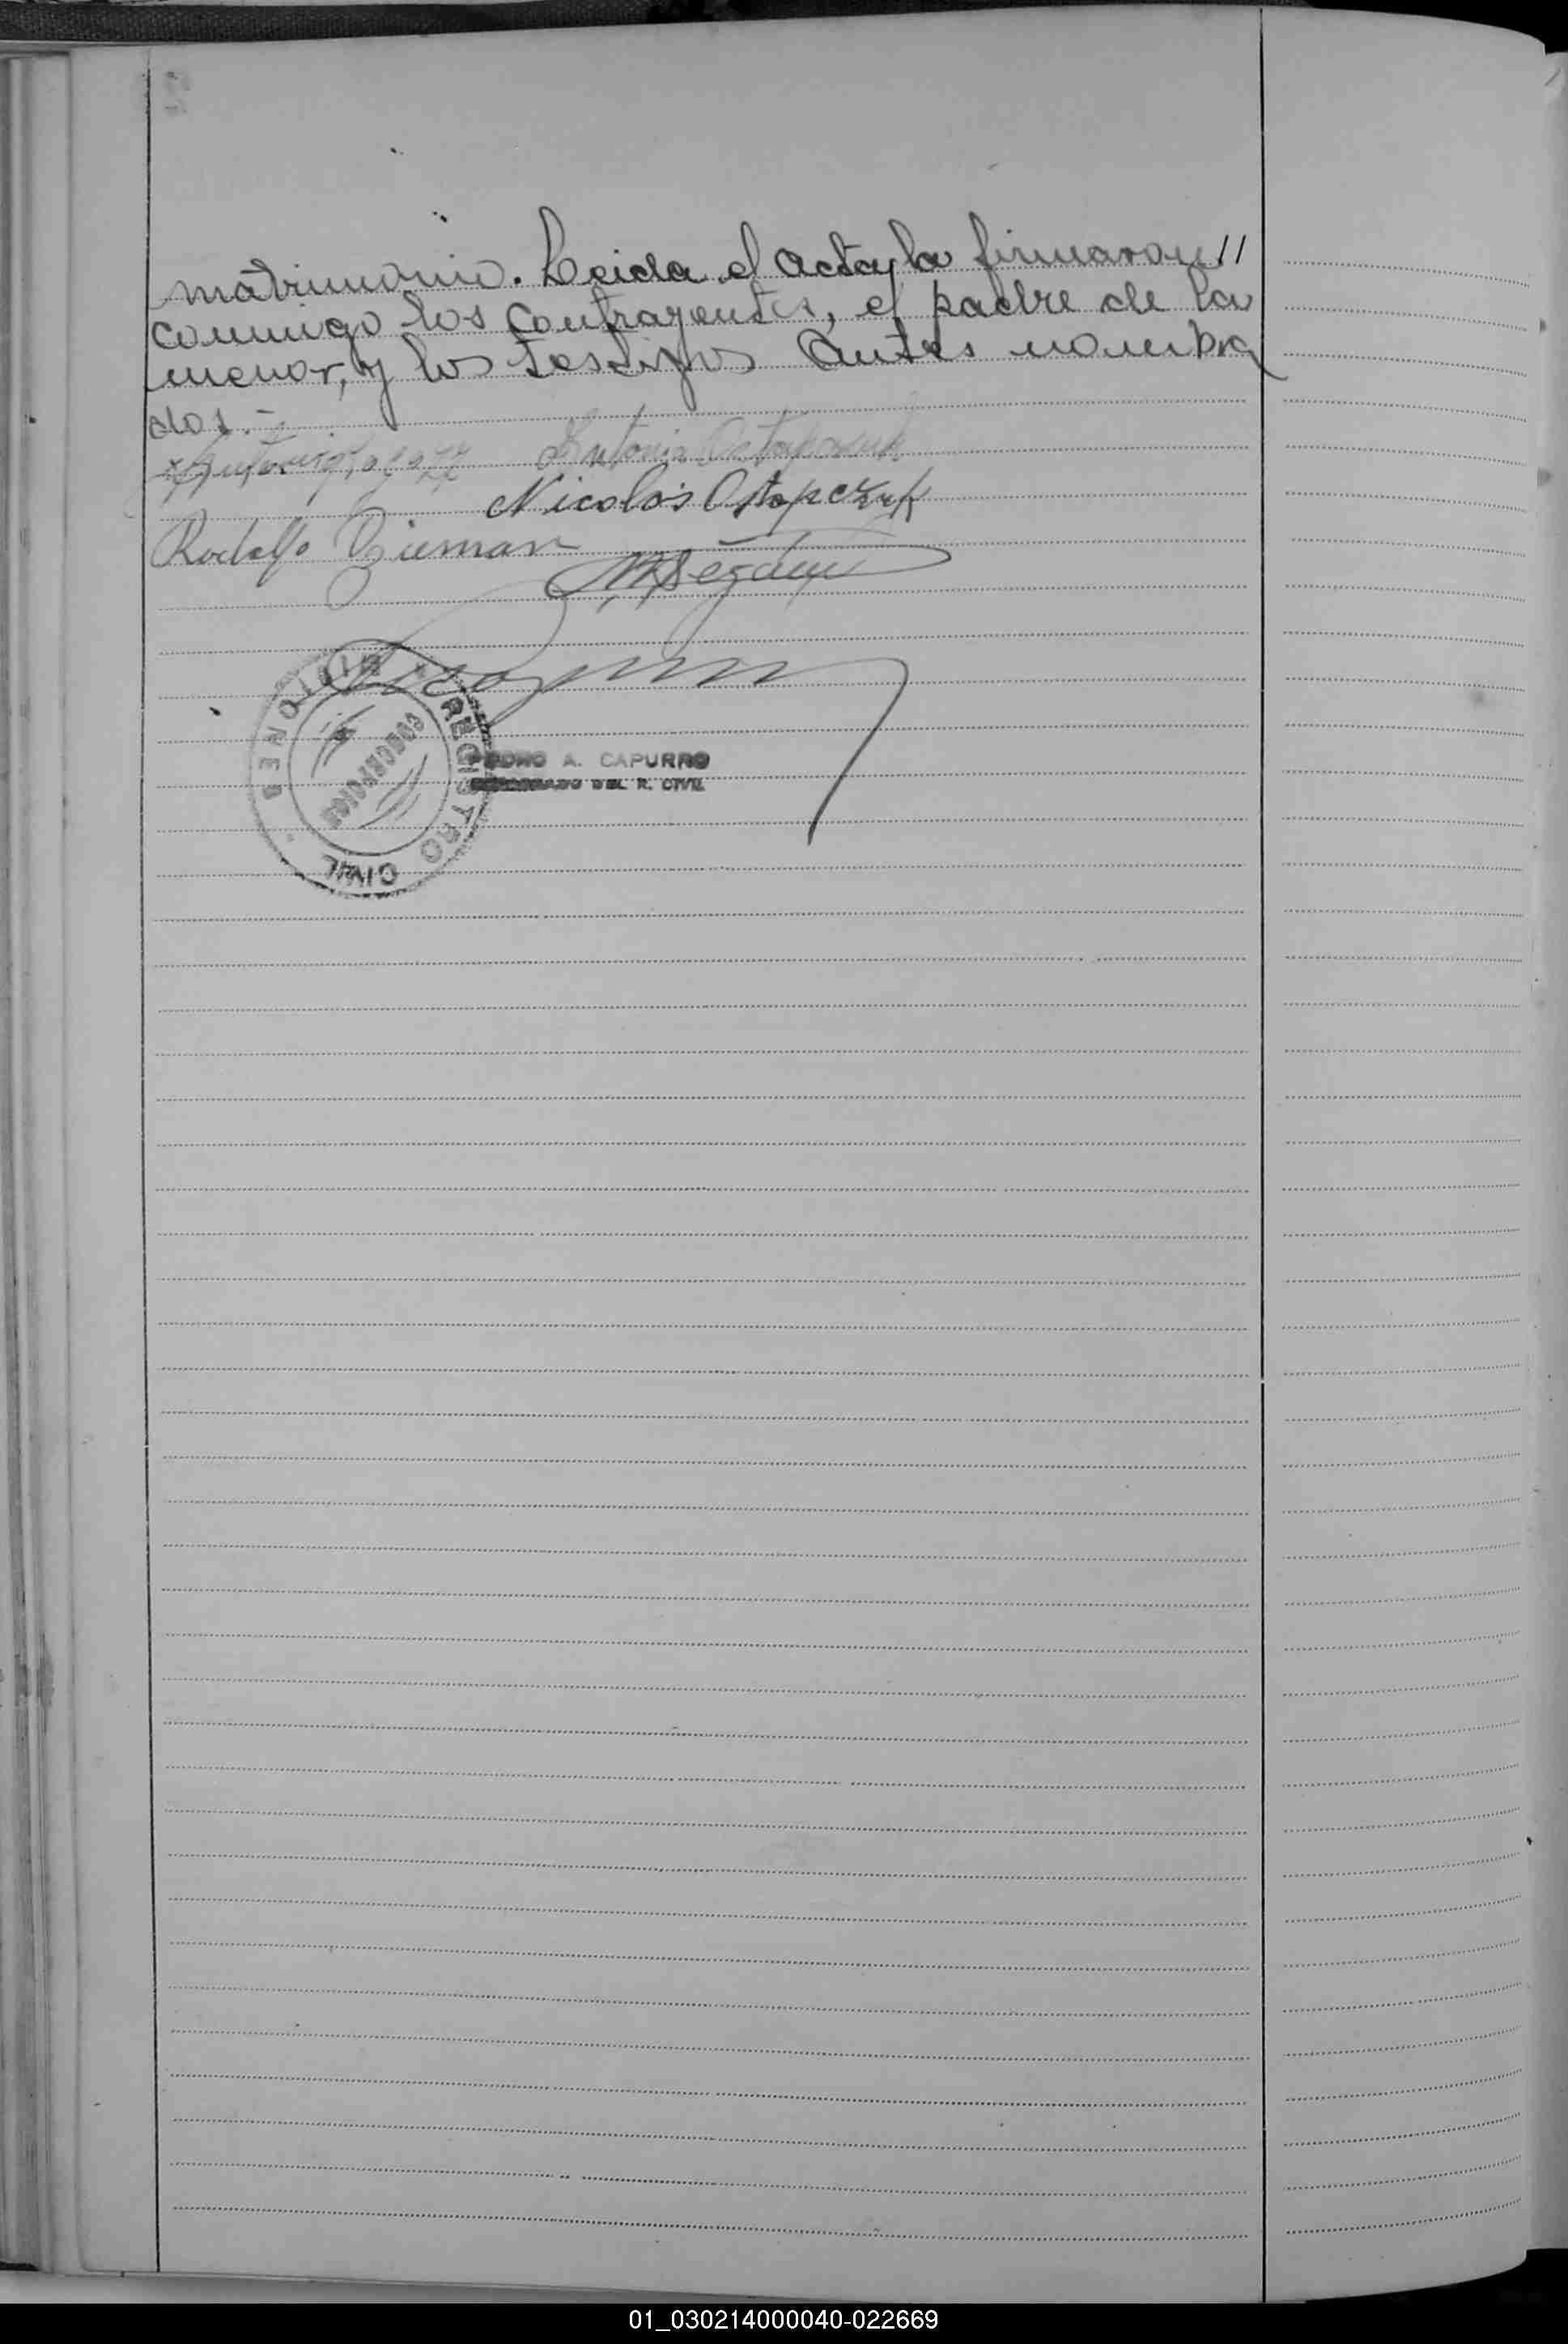 matrimonio. Leida el acta, la firmaron //
conmigo los contrayentes, el padre de la
menor, y los testigos antes nombra
dos.-
Antonio Antonia Ostapczuk
Nicolás Ostapczuk
Rodolfo Ziemann
REGISTRO CIVIL
CONCEPCION
MISIONES
PEDRO A. CAPURRO
ENCARGADO DEL R. CIVIL
01_030214000040-022669